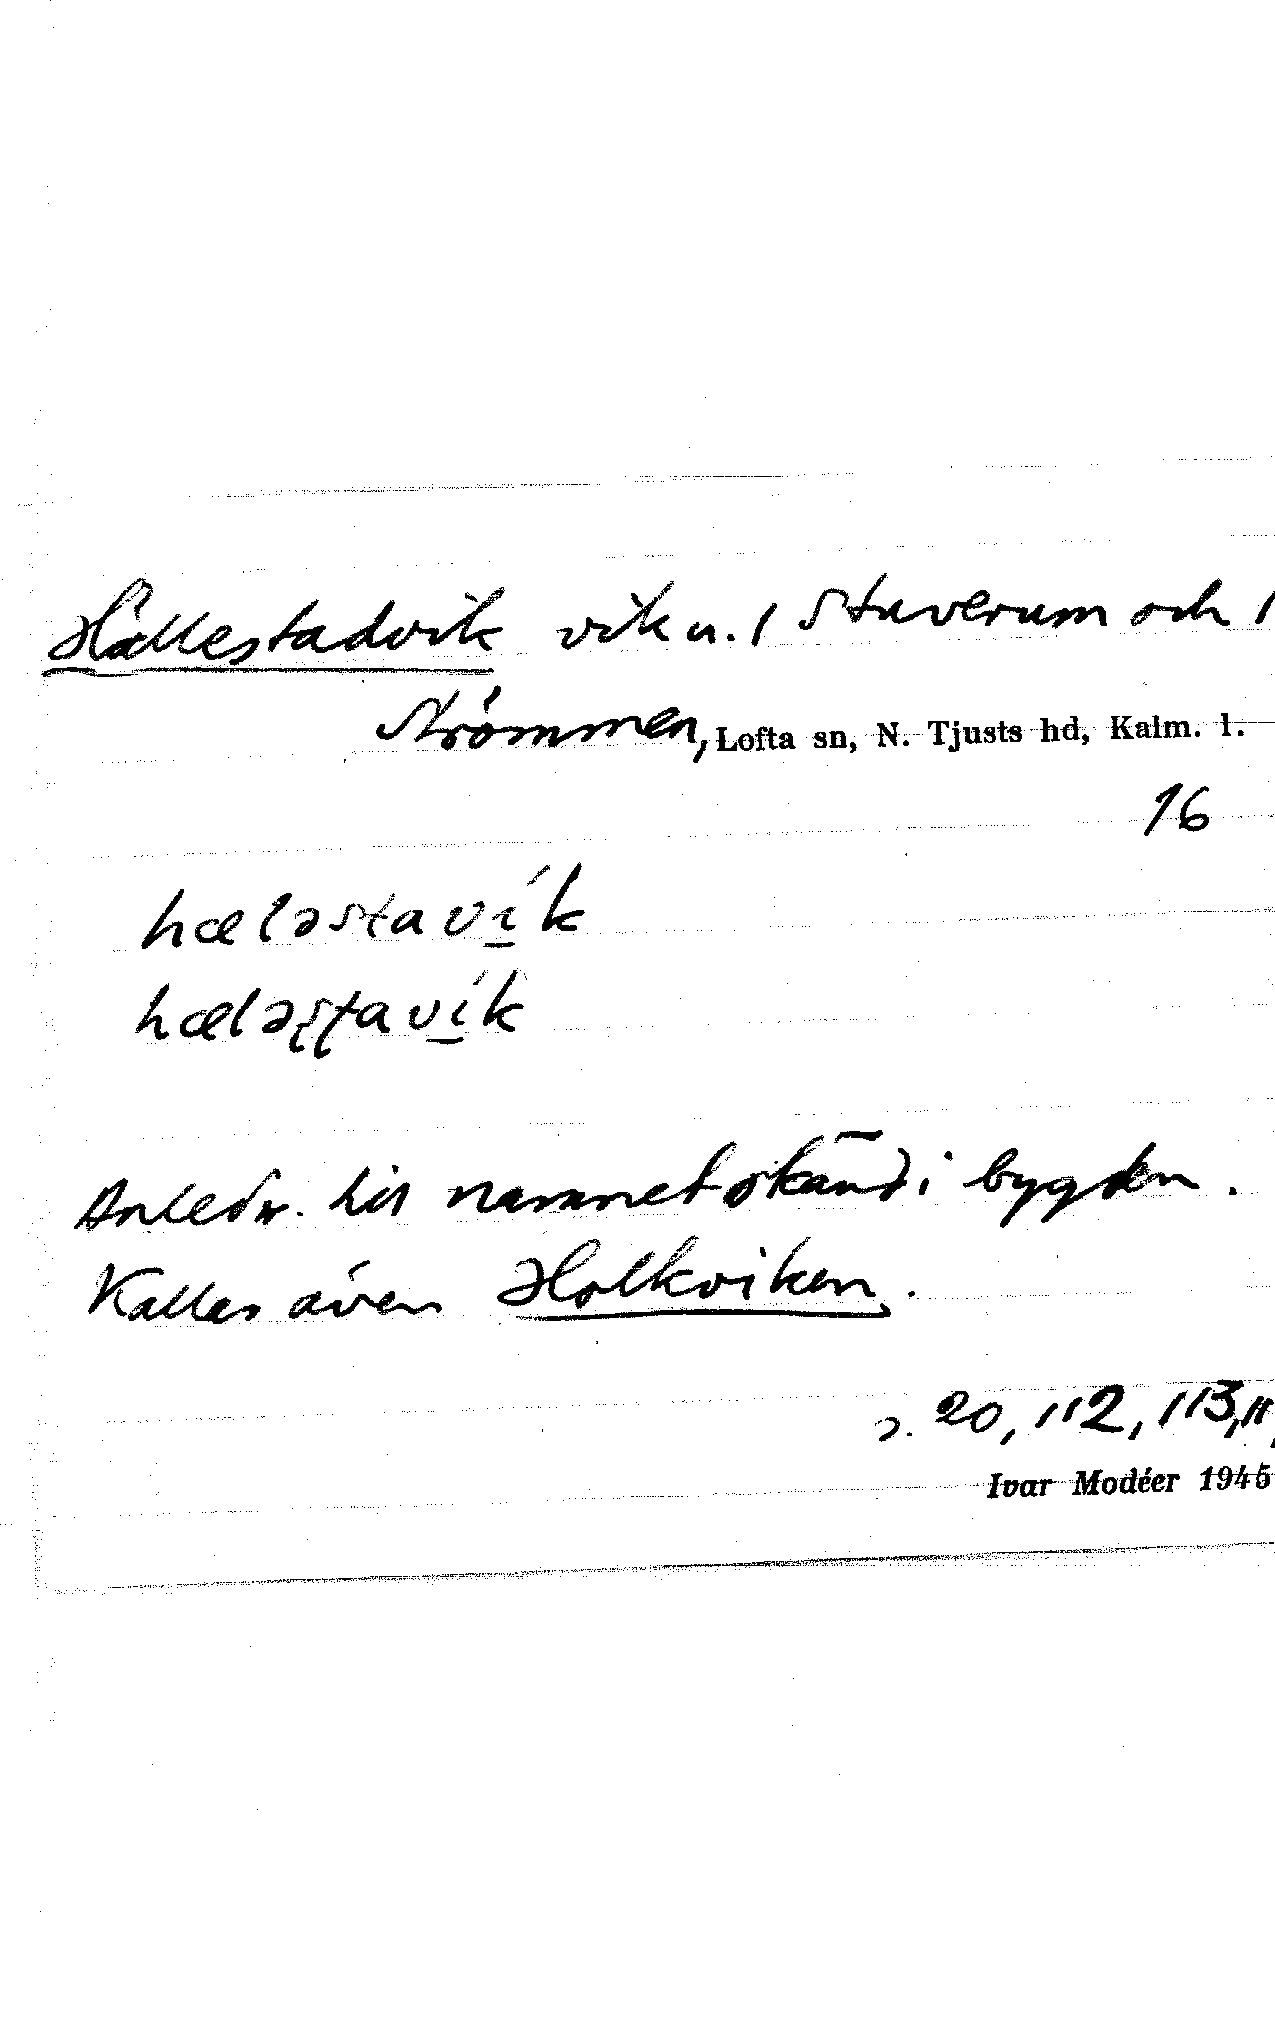 Hällestadvik vik u. 1 Stuverum och 1
Strömmen, Lofta sn, N. Tjusts hd, Kalm. l.
16
hæləstaví̱k
hæləʂʈaví̱k
Anledn. till namnet okänd i bygden.
Kallas även Holkviken.
2. 20, 112, 113,
Ivar Modéer 1945